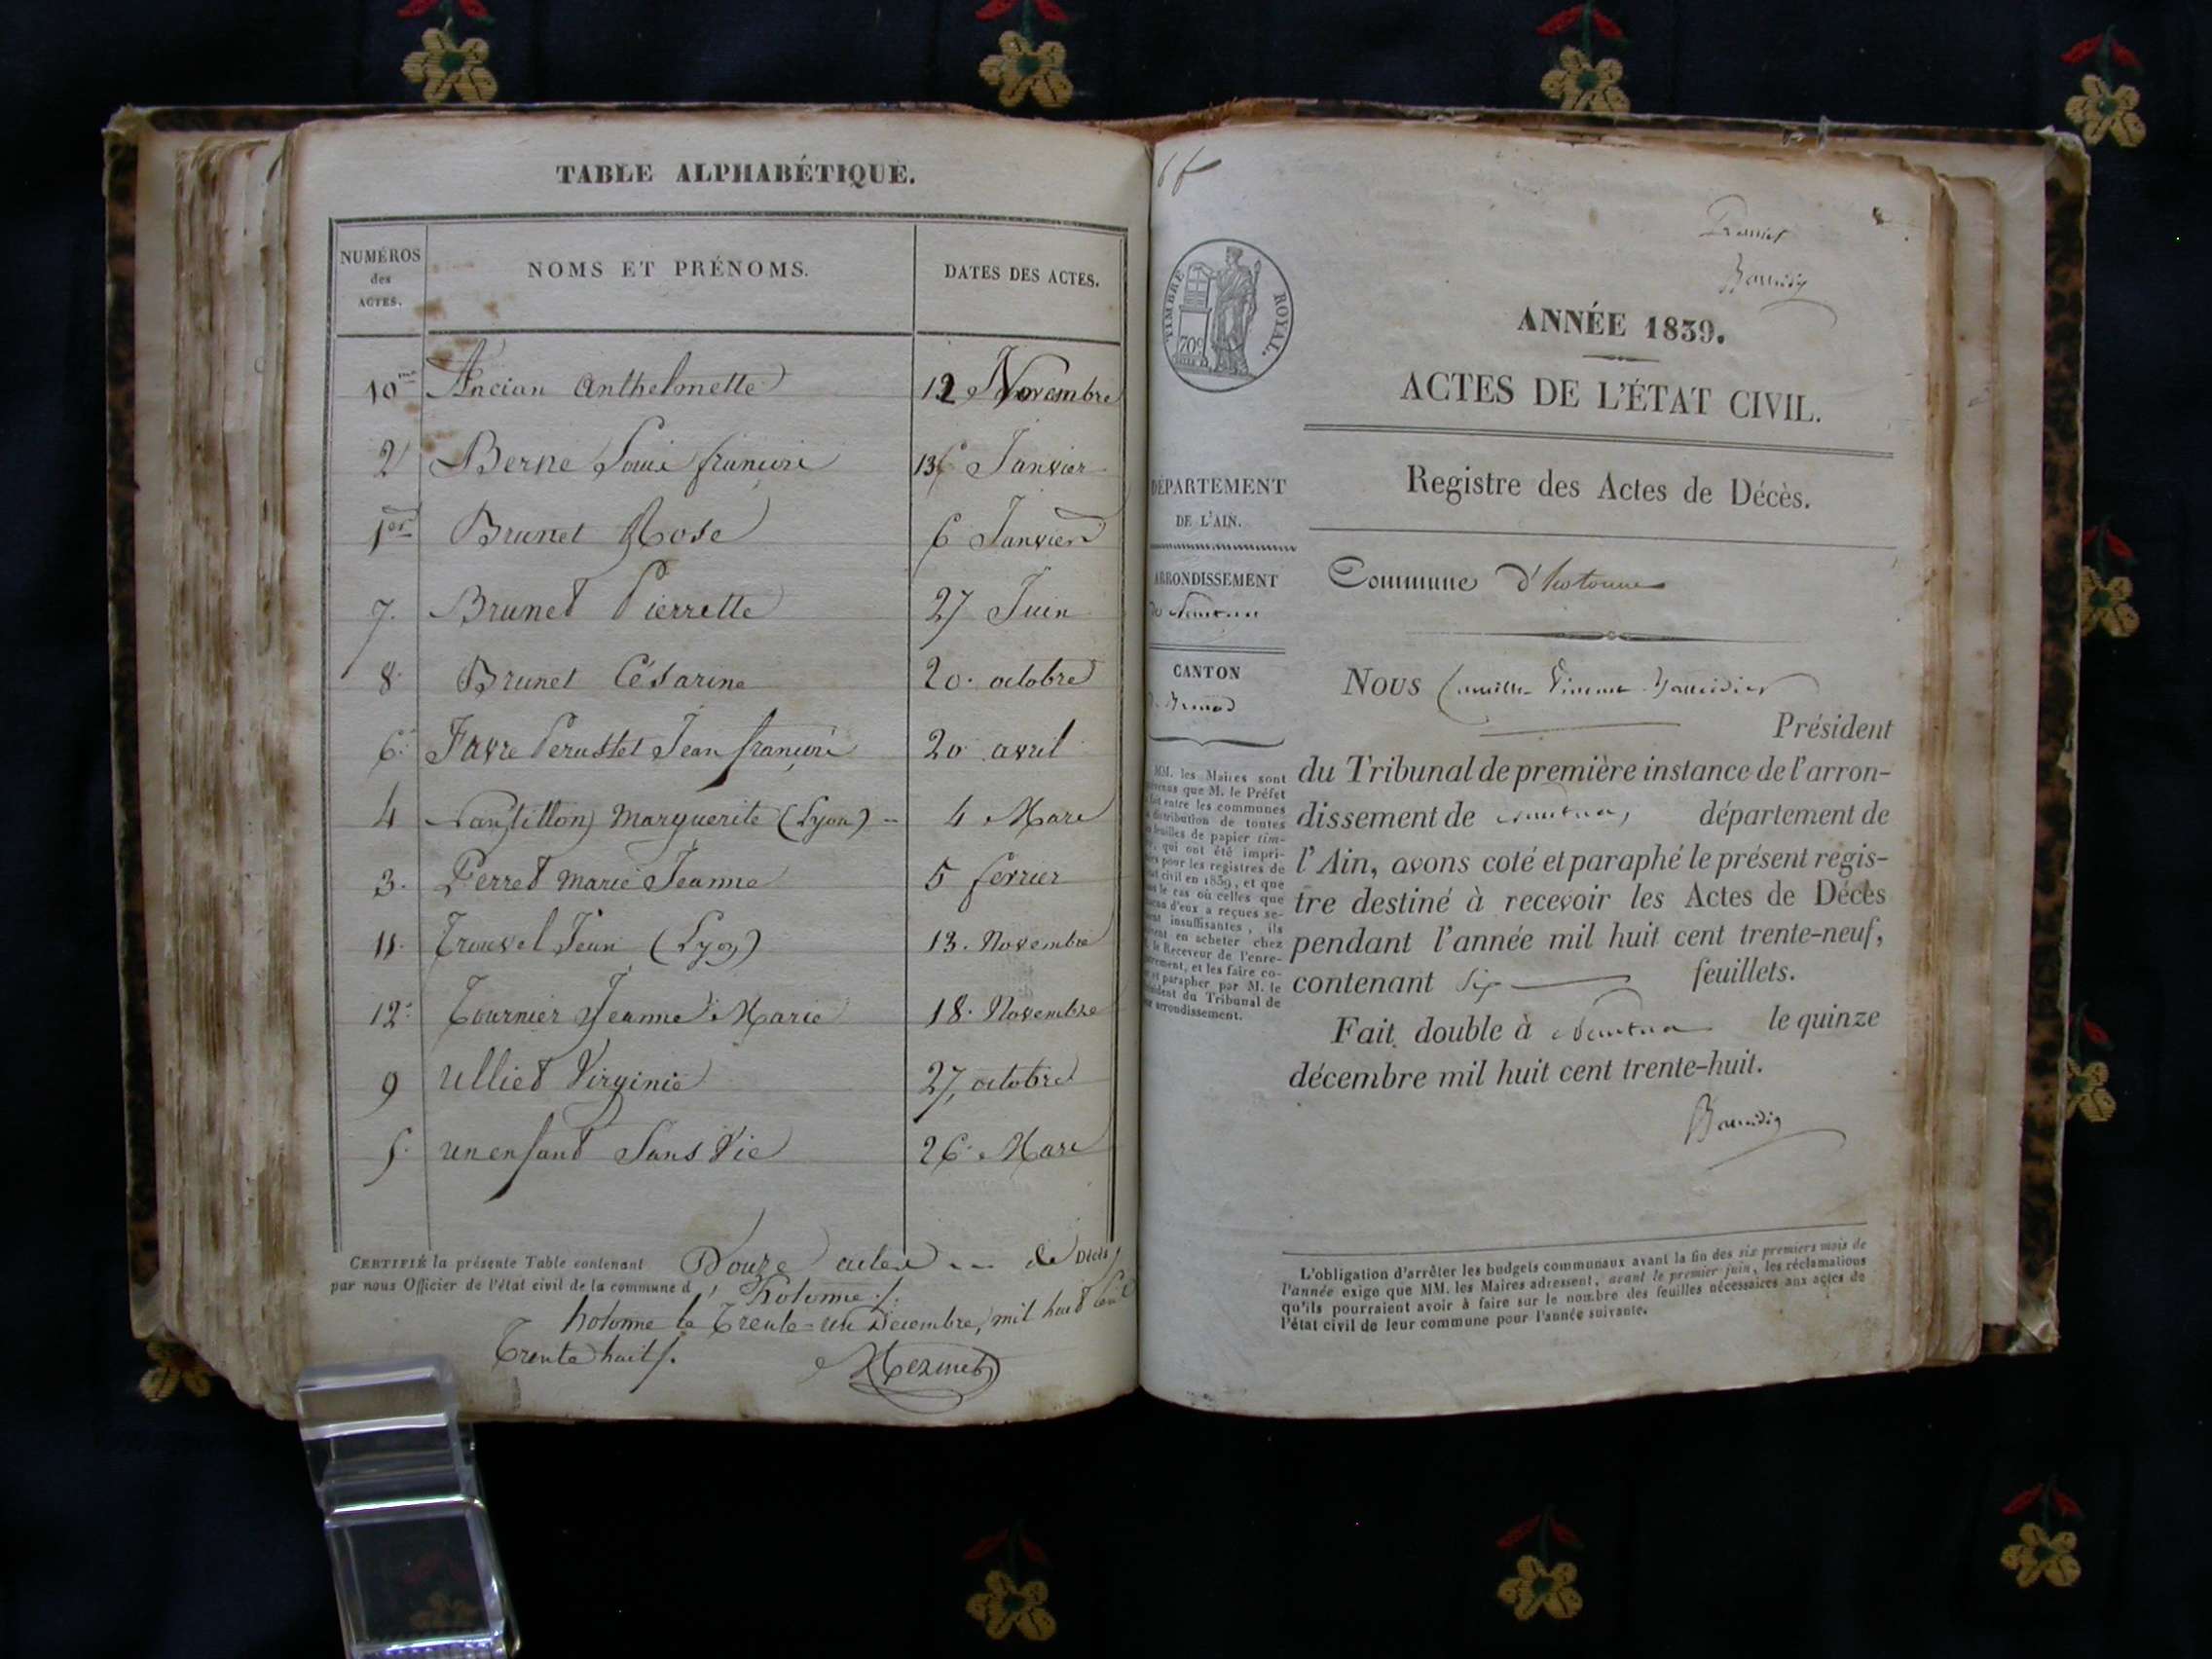 TABLE ALPHABÉTIQUE.
NUMÉROS des ACTES.
NOMS ET PRÉNOMS.
DATES DES ACTES.
10me Ancian Anthelmette 12 Novembre
2 Berne Louis françois 13 Janvier
1er Brunet Rose 6 Janvier
7. Brunet Pierrette 27 Juin
8. Brunet Césarine 20. octobre
6. Favre Perustet Jean françois 20 avril
4 Nantillon Marguerite (Lyon) 4 Mars
3. Perret Marie Jeanne 5 fevrier
11. Trouvel Jean (Lyon) 13. Novembre
12. Tournier Jeanne Marie 18. Novembre
9 Ulliet Virginie 27, octobre
5. un enfant Sans Vie 26. Mars
CERTIFIÉ la présente Table contenant Douze actes de Décès
par nous Officier de l'état civil de la commune d'hotonne
hotonne le Trente-un Décembre, mil huit Cent
Trente huit.
Premier
ANNÉE 1839.
TIMBRE ROYAL.
70c
ACTES DE L'ÉTAT CIVIL.
Registre des Actes de Décès.
DÉPARTEMENT
DE L'AIN.
ARRONDISSEMENT
de Nantua
CANTON
de Brenod
MM. les Maires sont
prévenus que M. le Préfet
fait entre les communes
la distribution de toutes
les feuilles de papier tim-
bré, qui ont été impri-
mées pour les registres de
l'état civil en 1839, et que
dans le cas où celles que
chacun d'eux a reçues se-
raient insuffisantes, ils
doivent en acheter chez
M. le Receveur de l'enre-
gistrement, et les faire co-
ter et parapher par M. le
Président du Tribunal de
leur arrondissement.
Commune d'hotonne
Nous Camille Vincent
Président
du Tribunal de première instance de l'arron-
dissement de Nantua, département de
l'Ain, avons coté et paraphé le présent regis-
tre destiné à recevoir les Actes de Décès
pendant l'année mil huit cent trente-neuf,
contenant six feuillets.
Fait double à Nantua le quinze
décembre mil huit cent trente-huit.
L'obligation d'arrêter les budgets communaux avant la fin des six premiers mois de
l'année exige que MM. les Maires adressent, avant le premier juin, les réclamations
qu'ils pourraient avoir à faire sur le nombre des feuilles nécessaires aux actes de
l'état civil de leur commune pour l'année suivante.